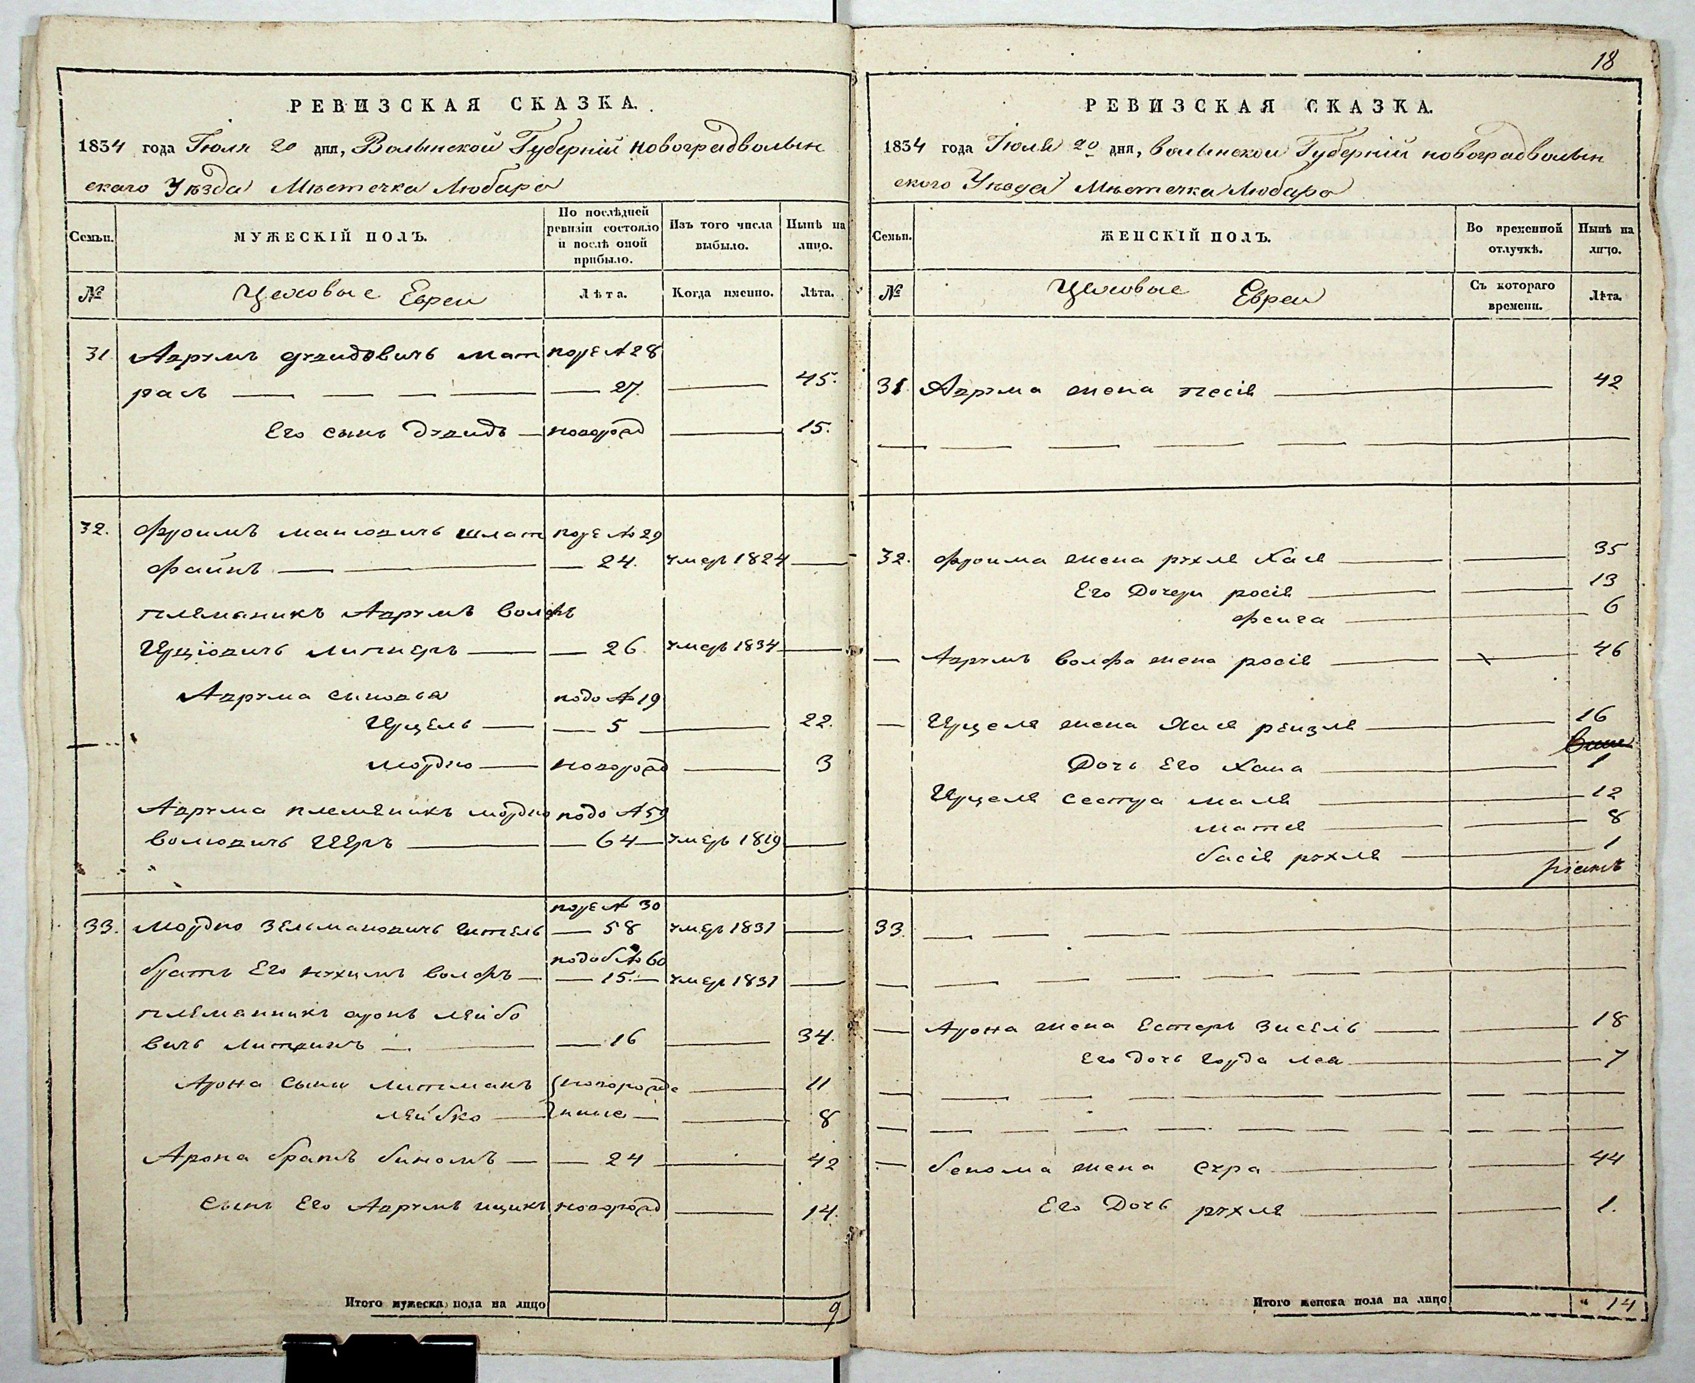 РЕВИЗСКАЯ СКАЗКА.
1834 года Іюля 20 дня, Волынской Губерніи новоградволын
скаго Уѣзда Мѣстечка Любара
Семьи.
МУЖЕСКІЙ ПОЛЪ.
По послѣдней ревизіи состояло и послѣ оной прибыло.
Изъ того числа выбыло.
Нынѣ на лицо.
№
Цеховые Евреи
Лѣта.
Когда именно.
Лѣта.
31 Аврумъ дувидовичъ мат подъ № 28
расъ — 27. — 45.
Его сынъ дувидъ — новорож — 15.
32. Фроимъ маиовичъ шпат подъ № 29
файнъ — 24. умеръ 1824 —
племаникъ Аврумъ волфъ
Ицковичъ литнеръ — 26 умеръ 1834 —
Аврума сыновья подо № 19
Ицель — 5 — 22.
мордко — новорож — 3
Аврума племеникъ мордко подо № 59
волковичъ — 64 — умеръ 1819 —
подъ № 30
33. Мордко Зельмановичъ — 58 умер 1831 —
подоб № 60
братъ Его нухимъ волфъ — 15. — умер 1831 —
племанникъ аронъ лейбо
вичъ — 16 — 34.
Арона сыны литманъ новорожде — 11
лейбко — нные — 8
Арона братъ биномъ — 24 — 42
сынъ Его Аврумъ ицикъ новорож — 14.
Итого мужеска пола на лицо 9
18
РЕВИЗСКАЯ СКАЗКА.
1834 года Іюля 20 дня, волынской Губерніи новоградволын
ского Уѣзда Мѣстечка Любара
Семьи.
ЖЕНСКІЙ ПОЛЪ.
Во временной отлучкѣ.
Нынѣ на лицо.
№
Цеховые Евреи
Съ котораго времени.
Лѣта.
31 Аврума жена песія — 42
32. Фроима жена рухля Хая — 35
Его Дочери росія — 13
фейга — 6
— Аврумъ волфа жена росія — 46
— Ицеля жена Хая рейзля — 16
Дочь Его Хана — 1
Ицеля сестра маля — 12
матля — 8
басія рухля — 1
33.
— Арона жена Естеръ зисель — 18
Его дочь горда лея — 7
— бенома жена сура — 44
Его Дочь рухля — 1.
Итого женска пола на лицо 14